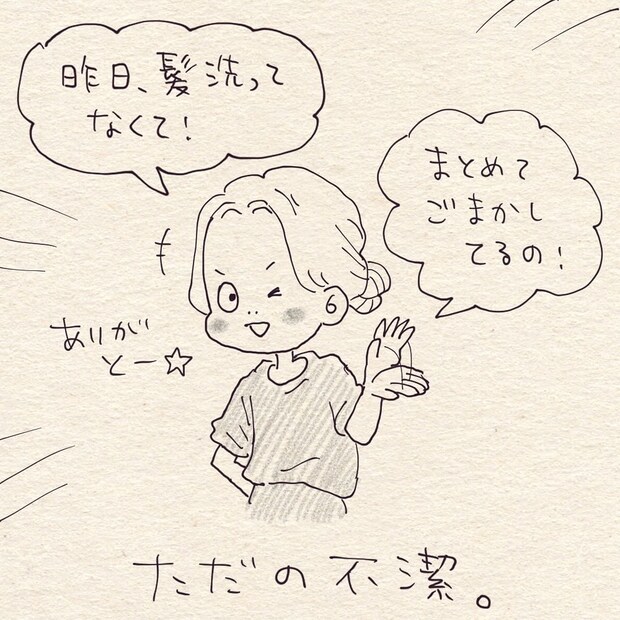 昨日、髪洗って
なくて！
まとめて
ごまかし
てるの！
ありが
とー☆
ただの不潔。